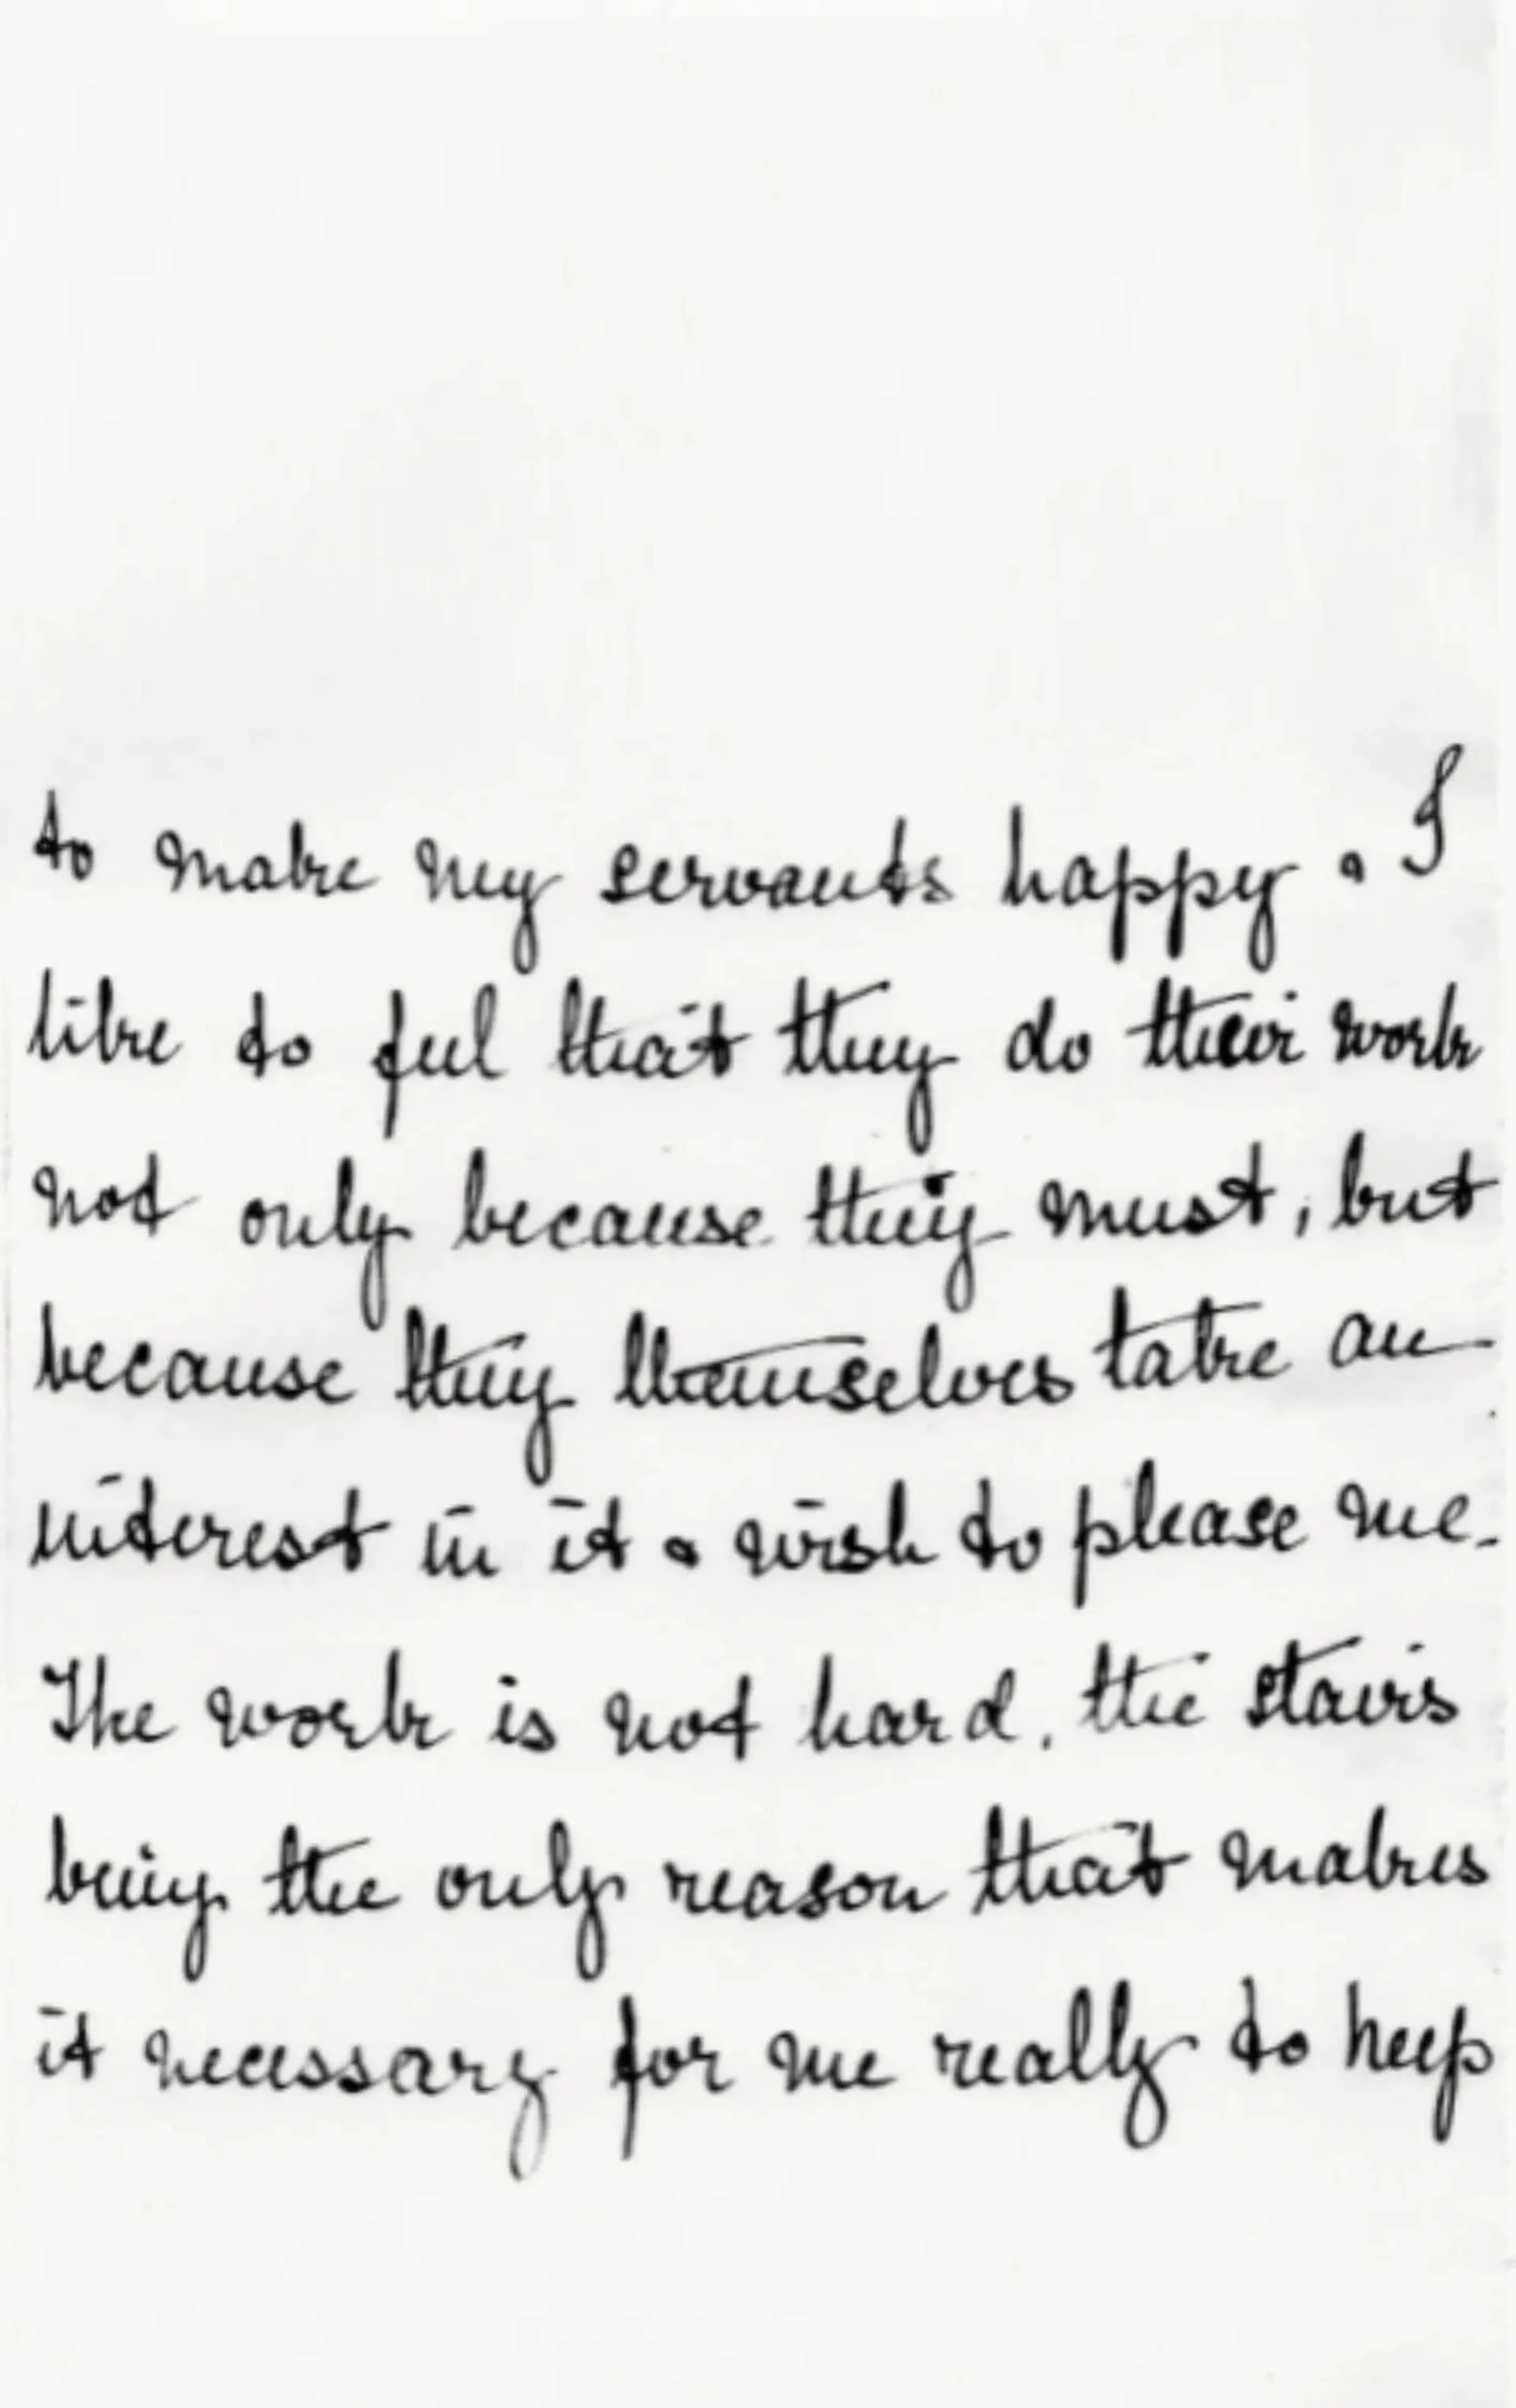 to make my servants happy & I
like to feel that they do their work
not only because they must, but
because they themselves take an
interest in it & wish to please me.
The work is not hard, the stairs
being the only reason that makes
it necessary for me really to keep